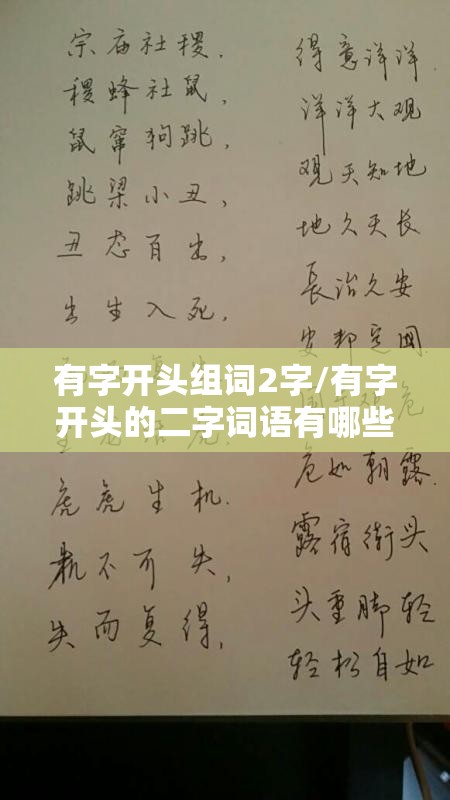 宗庙社稷.
稷蜂社鼠,
鼠窜狗跳,
跳梁小丑,
丑态百出,
出生入死,
有字开头组词2字/有字
开头的二字词语有哪些
虎虎生机.
机不可失,
失而复得,
得意洋洋.
洋洋大观
观天知地
地久天长
長治久安
安邦定国
危
危如朝露.
露宿街头
头重脚轻
轻松自如